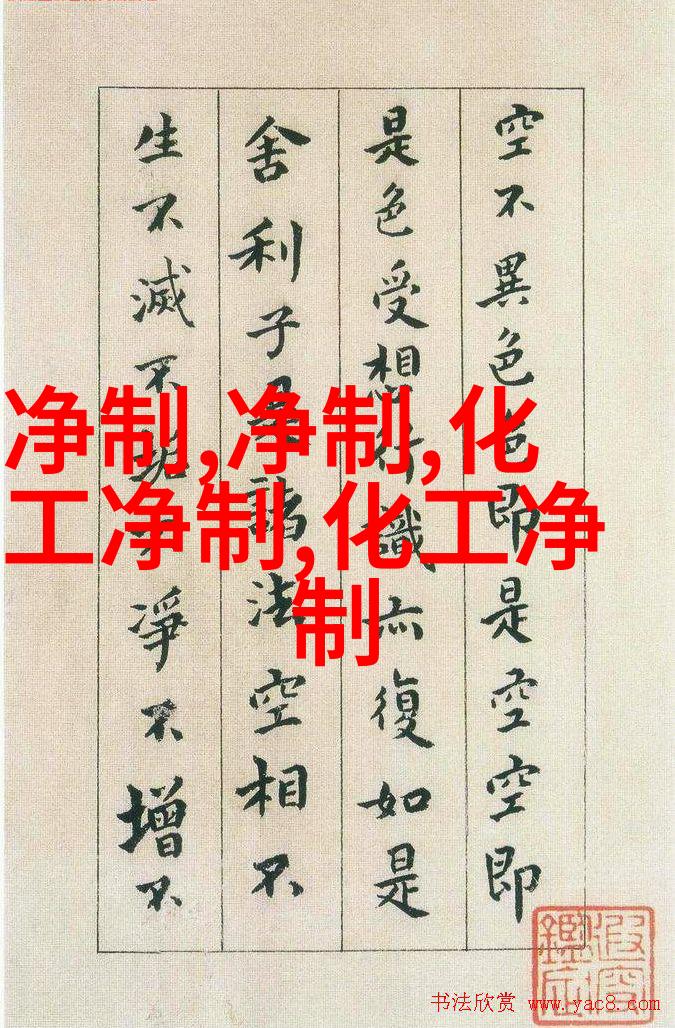 空不異色色即是空空即
是色受想行識亦復如是
舍利子是諸法空相不
生不滅不垢不淨不增不
净制,净制,化
工净制,化工净
制
书法欣赏 www.yac8.com